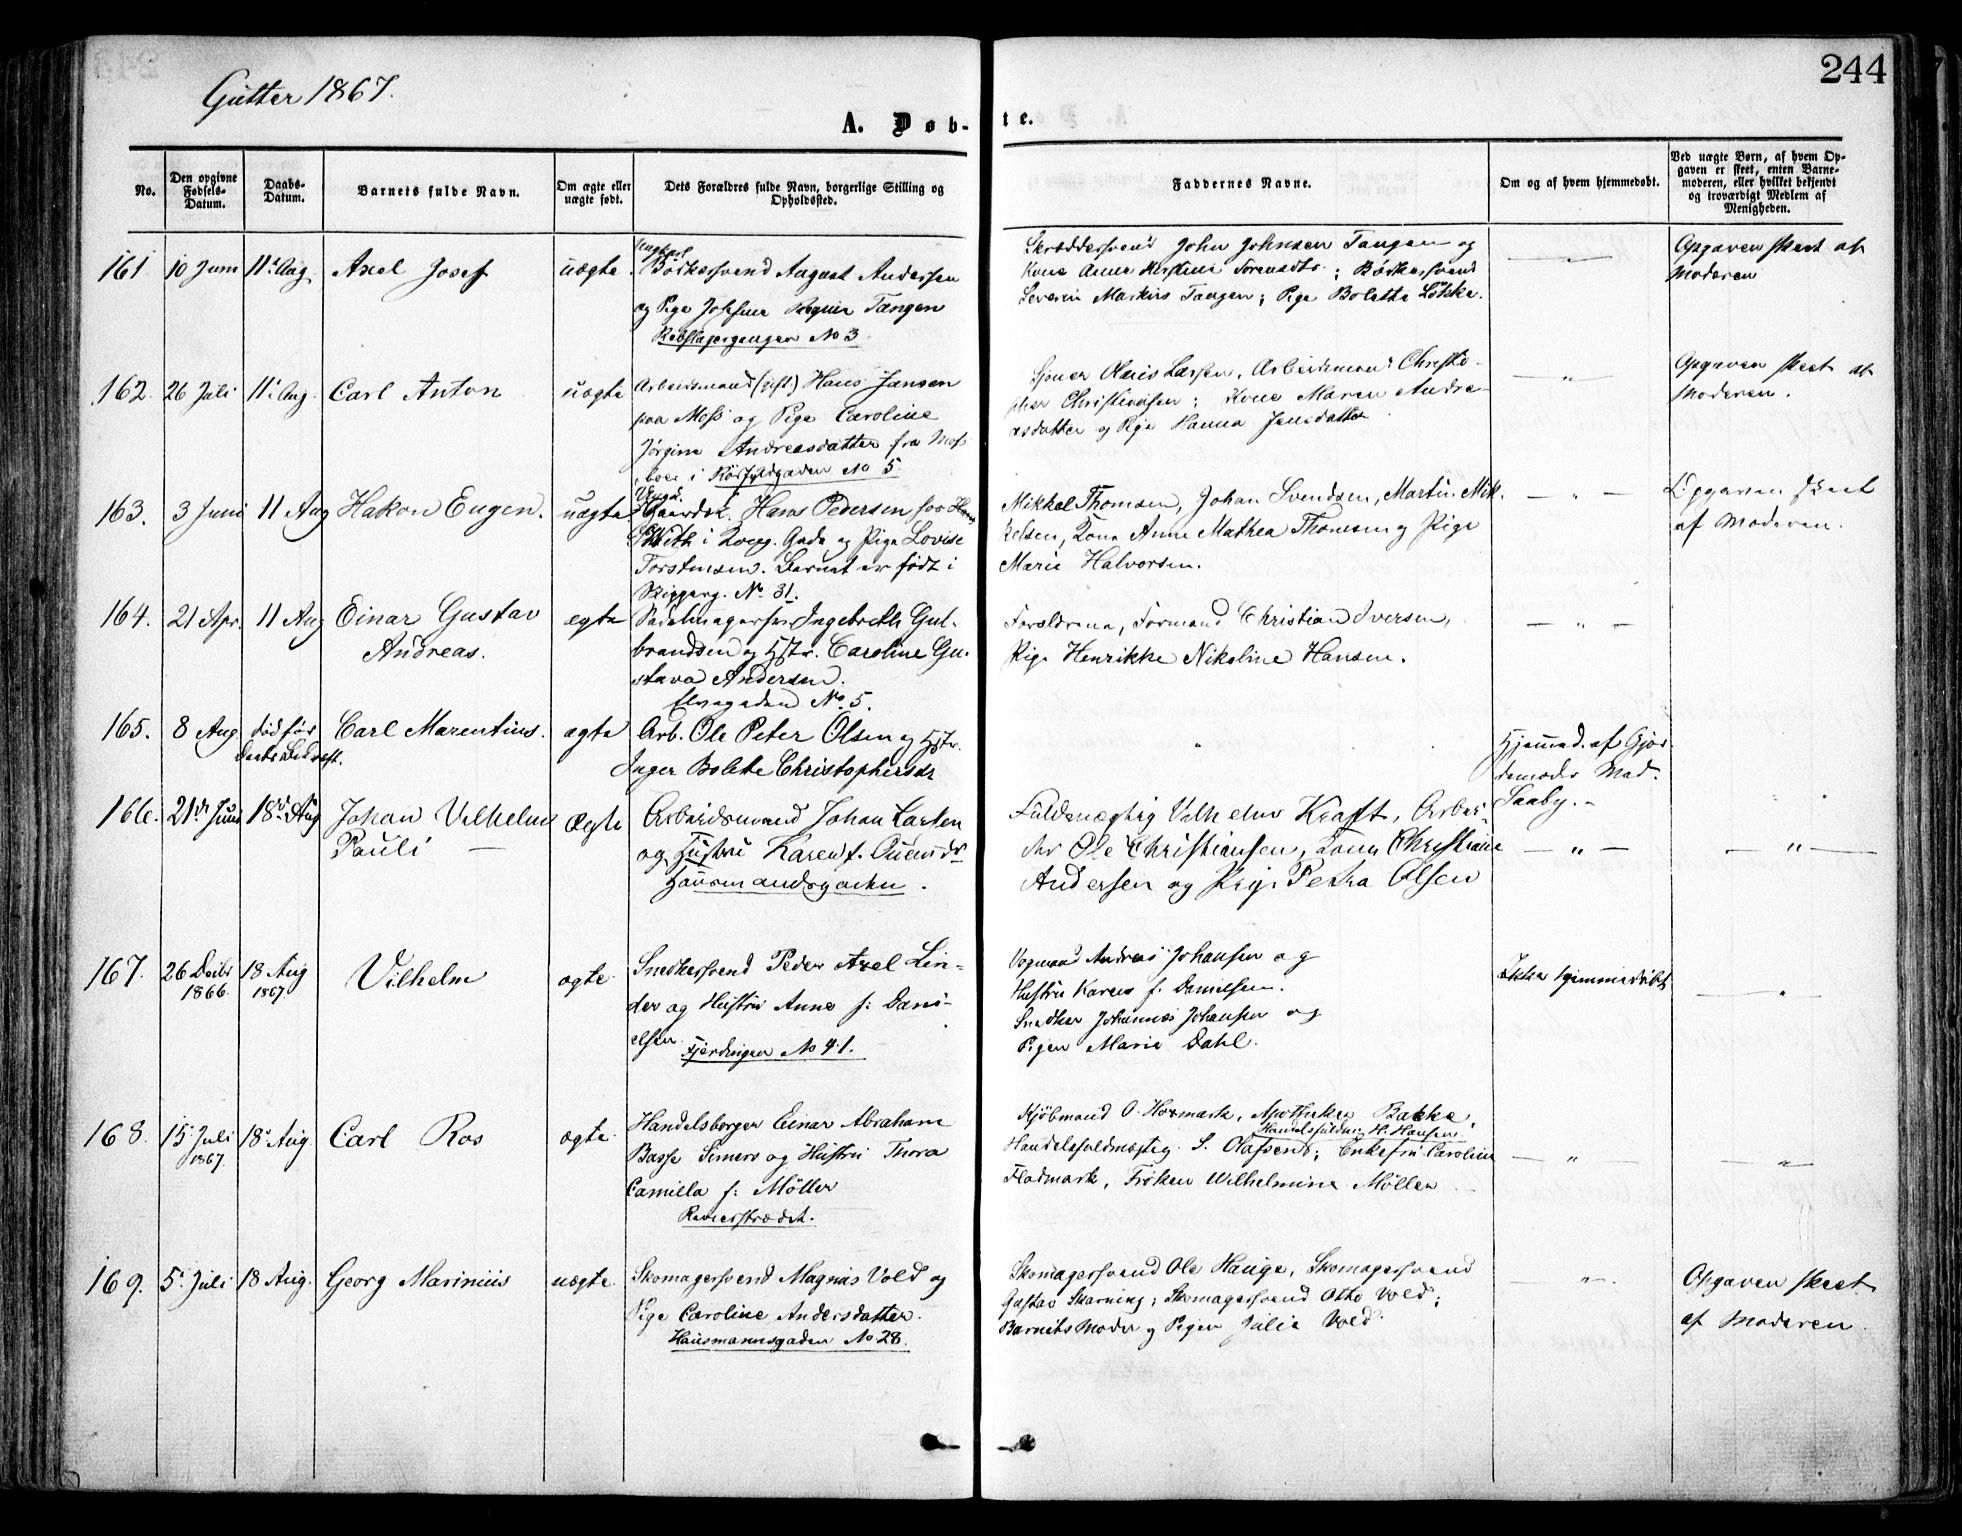 244
Gutter 1867.
A. Døb-
te.
No.
Den opgivne Fødsels-Datum.
Daabs-Datum.
Barnets fulde Navn.
Om ægte eller uægte født.
Dets Forældres fulde Navn, borgerlige Stilling og Opholdssted.
Faddernes Navne.
Om og af hvem hjemmedøbt.
Ved uægte Børn, af hvem Opgaven er skeet, enten Barnemoderen, eller hvilket bekjendt og troværdigt Medlem af Menigheden.
161 10 Juni 11' Aug Axel Josef uægte
Ungkarl
Bødkersvend August Andersen
og Pige Josefine Tangen
Rebslagergangen No 3
Skræddersvend John Johnsen Tangen og
Kone Anne Kirstine ; Bødkersvend
Severin Markus Tangen; Pige Bolette Løkke.
— " —
Opgaven skeet af
Moderen
162. 26 Juli 11' Aug. Carl Anton uægte
Arbeidsmand (gift) Hans Jansen
paa Moss og Pige Caroline
Jørgine Andreasdatter fra Moss
, boer i No 5.
Larsen, Arbeidsmand Christo-
pher Christensen; Kone Maren Andre-
asdatter og Pige Hanna Jensdatter
— " —
Opgaven skeet af
Moderen.
163. 3 Juni 11 Aug Hakon Eugen. uægte
Ungk.
Gaardsk. Hans Pedersen hos
With i Gade og Pige Lovise
Torstensen. Barnet er født i
Skipperg. No. 31.
Mikkel Thomsen, Johan Svendsen, Martin Mik-
kelsen, Kone Anne Mathea Thomsen og Pige
Marie Halvorsen.
— " —
Opgaven skeet
af Moderen.
164. 21 Apr. 11 Aug Einar Gustav
Andreas. ægte
Sadelmagersv. Ingebreth Gul-
brandsen og Hstr. Caroline Gu-
stava Andersen.
Elvegaden No. 5.
Forældrene, Formand Christian Iversen,
Pige Henrikke Nikoline Hansen.
— " —
165. 8 Aug død før
Daabs Bekræft. Carl Marentius. ægte
Arb. Ole Peter Olsen og Hstr.
Inger Bolette Christophersdr
"
Hjemmed. af Gjor-
demoder Mad.
Saaby. -
166. 21de Juni 18de Aug Johan Vilhelm
Pauli — Ægte
Arbeidsmand Johan Larsen
og Hustru Karen f.
Hausmandsgaden.
Fuldmægtig Vilhelm Kraft, Arbei-
der Ole Christiansen, Kone Christiane
Andersen og Pige Petra Olsen
— " —
— " —
167. 26 Decbr
1866. 18 Aug
1867. Vilhelm ægte.
Snedkersvend Peder Axel Lin-
der og Hustru Anne f: Dani-
elsen.
Fjerdingen No 41.
Vognmand Andreas Johansen og
Hustru Karen f. Danielsen.
Snedker Johannes Johansen og
Pigen Marie Dahl.
Ikke hjemmedøbt
— " —
168. 15' Juli
1867. 18' Aug. Carl Ros ægte.
Handelsborger Einar Abraham
Basse Simers og Hustru Thora
Camilla f: Möller
Revierstrædet.
Kjøbmand O. Hormark, Apotheker Bakke,
Handelsfuldm. H. Hansen
Handelsfuldmægtig S. Olafsend; Enkefru Caroline
Fladmark, Frøken Wilhelmine Möller
— " —
— " —
169. 5' Juli 18 Aug. Georg Marinius uægte.
Skomagersvend Magnus Vold og
Pige Caroline Andersdatter.
Hausmannsgaden No 28.
Skomagersvend Ole Hauge, Skomagersvend
Gustav Skarning; Skomagersvend Otto Vold;
Barnets Moder og Pigen Julie Vold.
— " —
Opgaven skeet
af Moderen.